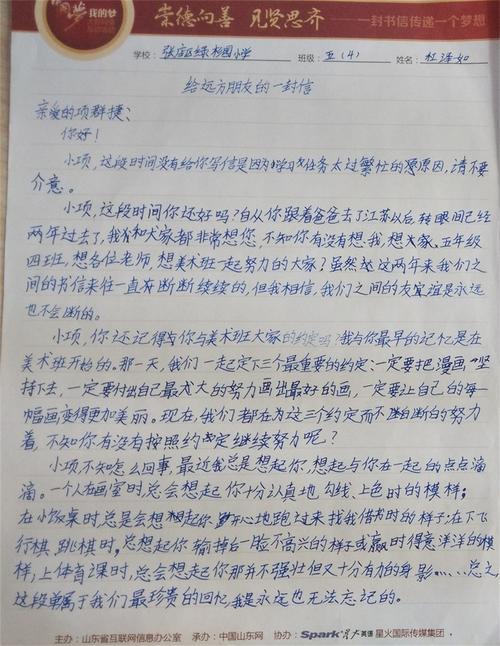 我的梦
崇德向善 见贤思齐
一封书信传递一个梦想
学校：张店区绿杉园小学 班级：五（4） 姓名：杜泽如
给远方朋友的一封信
亲爱的项群捷：
你好！
小项，这段时间没有给你写信是因为学习任务太过繁忙的原因，请不要
介意。
小项，这段时间你还好吗？自从你跟着爸爸去了江苏以后，转眼间已经
两年过去了，我和大家都非常想您，不知你有没有想我，想大家、五年级
四班，想各位老师，想美术班一起努力的大家？虽然这两年来我们之
间的书信来往一直在断断续续的，但我相信，我们之间的友谊是永远
也不会断的。
小项，你还记得与你与美术班大家的约定吗？我与你最早的记忆是在
美术班开始的。那一天，我们一起定下三个最重要的约定：一定要把漫画“坚
持下去，一定要付出自己最大的努力画出最好的画，一定要让自己的每一
幅画变得更加美丽。现在，我们都在为这三个约定而不断的努力
着，不知你有没有按照约定继续努力呢？
小项不知怎么回事，最近我总是想起你，想起与你在一起的点点滴
滴。一个人在画室时总会想起你十分认真地勾线、上色时的模样；
在小饭桌时总是会想起你开心地跑过来找我借书时的样子；在下飞
行棋、跳棋时，总想起你输掉后一脸不高兴的样子或赢时得意洋洋的模
样，上体育课时，总会想起你那并不强壮但又十分有力的身影……总之，
这段单属于我们最珍贵的回忆，我是永远也无法忘记的。
主办：山东省互联网信息办公室 承办：中国山东网 协办：Spark 星火英语 星火国际传媒集团